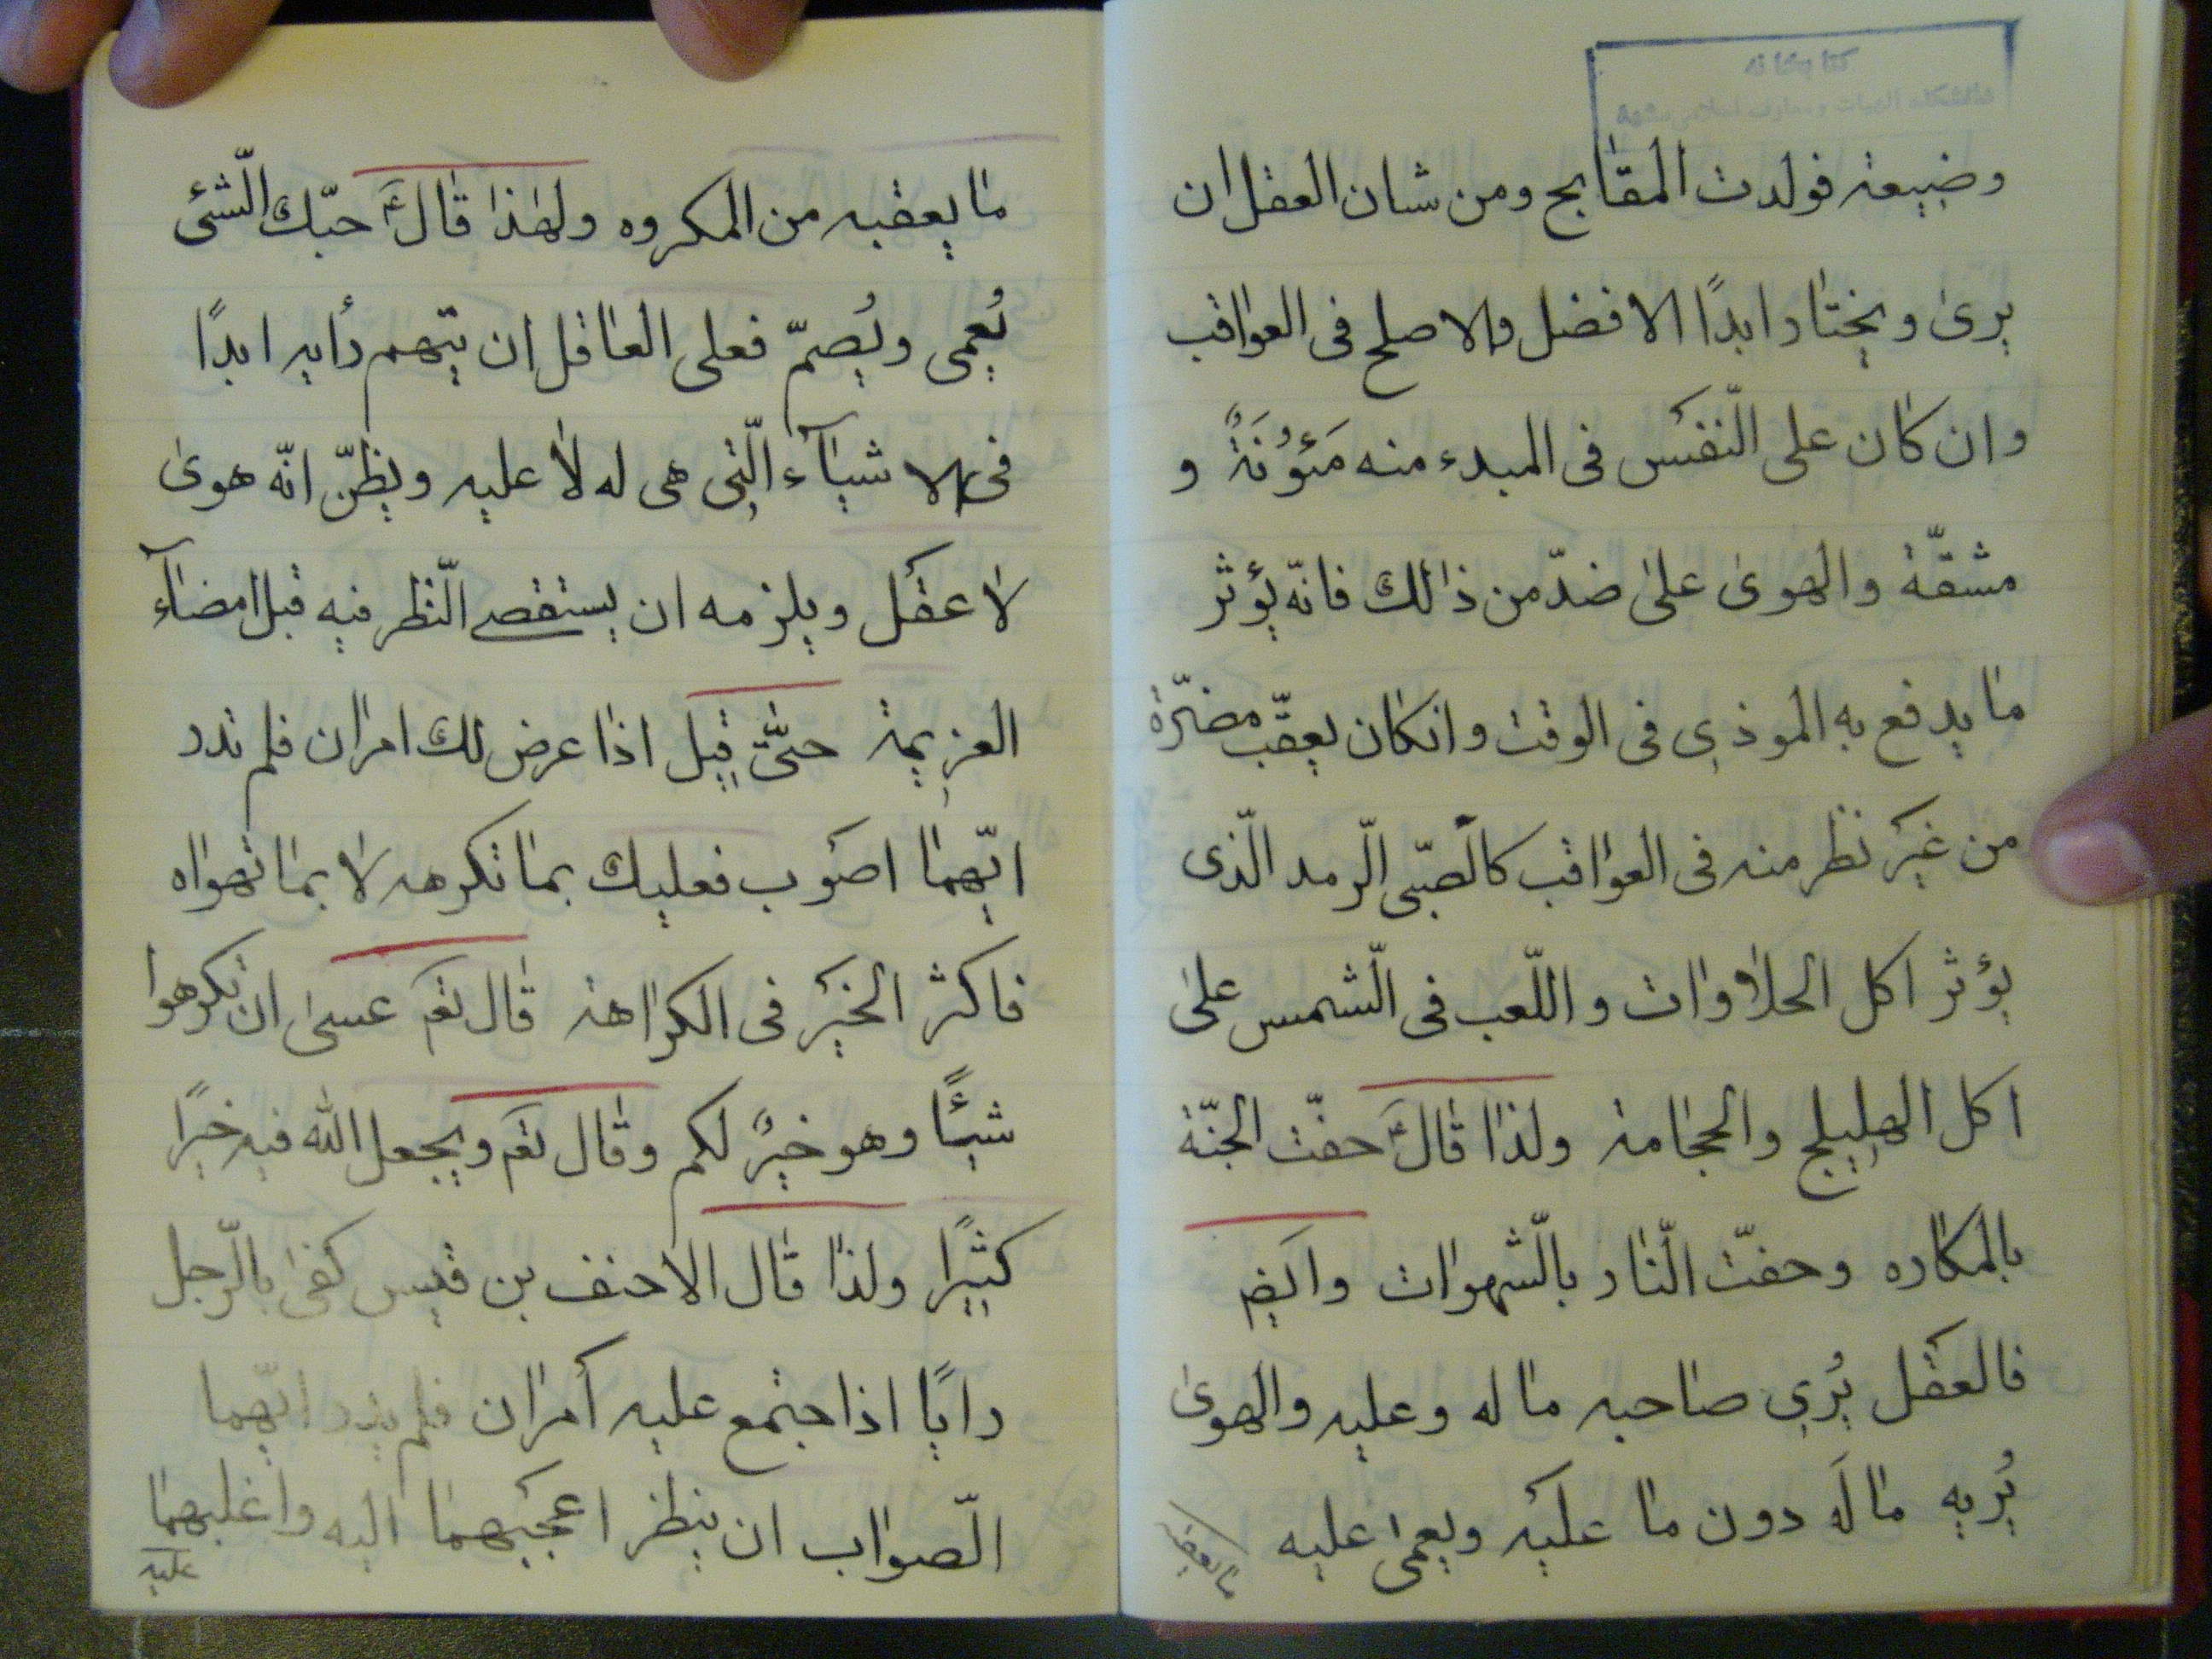 كتابخانه
دانشكده الهيات ومعارف اسلامى مشهد
وضيعة فولدت المقابح ومن شان العقل ان
يرىٰ ويختار ابدًا الافضل والاصلح فى العواقب
وان كان على النّفس فى المبدء منه مَئوُنَةٌ و
مشقّة والهوى علىٰ ضدّ من ذالك فانّه يؤثر
ما يدفع به الموذى فى الوقت وانكان يعقّب مضرّة
من غير نظر منه فى العواقب كالصّبى الرّمد الّذى
يؤثر اكل الحلاوات واللّعب فى الشّمس علىٰ
اكل الهليلج والحجامة ولذا قالَ؏ حفّت الجنّة
بالمكاره وحفّت النّار بالشّهوات وايضٍ
فالعقل يُرى صاحبه ما له وعليه والهوىٰ
يُريه ما لَه دون ما عليه ويعمىٰ عليه
ما يعقبه
ما يعقبه من المكروه ولهٰذا قالَ؏ حبّك الشّئ
يُعمى ويُصمّ فعلى العاقل ان يتّهم رأيه ابدًا
فى الاشيآء الّتى هى له لا عليه ويظنّ انّه هوىٰ
لا عقل ويلزمه ان يستقصى النّظر فيه قبل امضآء
العزيمة حتّى قيل اذا عرض لك امران فلم تدر
ايّهما اصوب فعليك بما تكرهه لا بما تهواه
فاكثر الخير فى الكراهة قال تعَم عسىٰ ان تكرهوا
شيئًا وهو خيرٌ لكم وقال تعَم ويجعل الله فيه خيرًا
كثيرًا ولذا قال الاحنف بن قيس كفىٰ بالرّجل
رايًا اذا جتمع عليه أمران فلم يدر ايّهما
الصّواب ان ينظر اعجبهما اليه واغلبهما
عليه